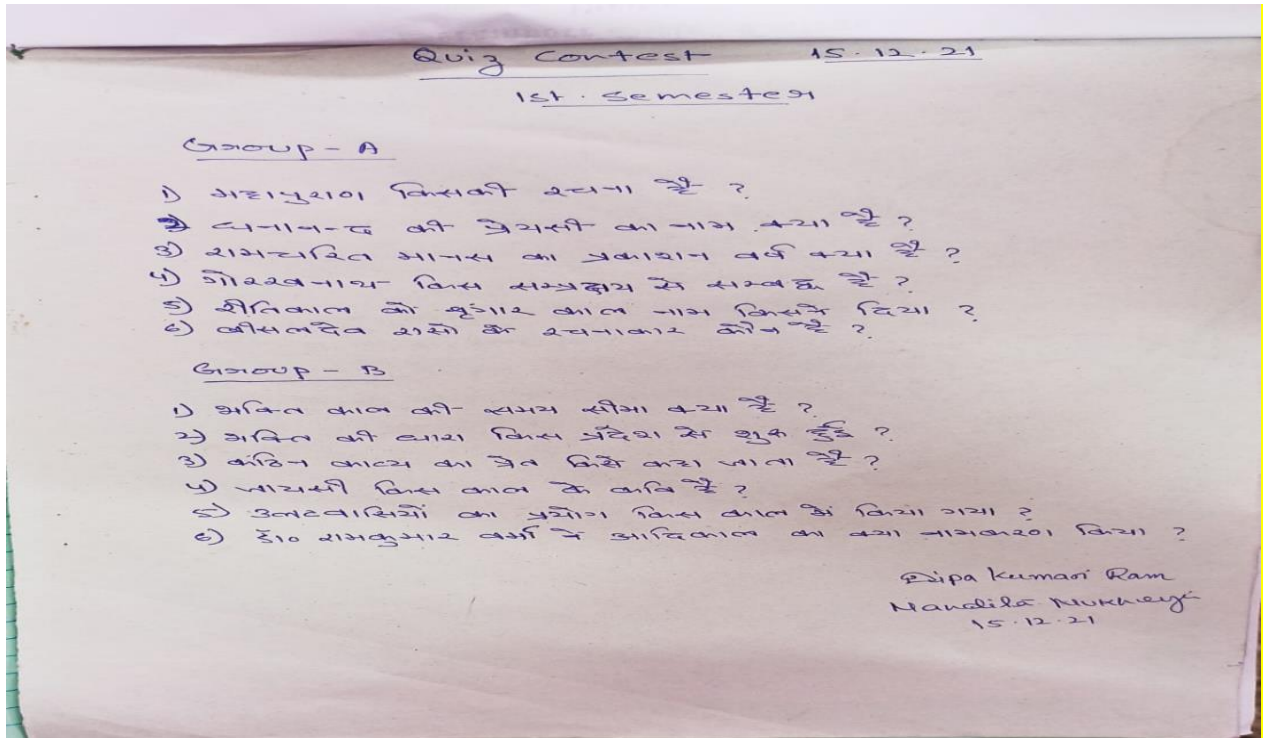 Quiz Contest 15.12.21
1st. Semester
Group - A
1) महापुराण किसकी रचना है ?
2) घनानन्द की प्रेयसी का नाम क्या है ?
3) रामचरित मानस का प्रकाशन वर्ष क्या है ?
4) गोरखनाथ किस सम्प्रदाय से सम्बद्ध है ?
5) रीतिकाल को श्रृंगार काल नाम किसने दिया ?
6) बीसलदेव रासो के रचनाकार कौन है ?
Group - B
1) भक्ति काल की समय सीमा क्या है ?
2) भक्ति की धारा किस प्रदेश से शुरू हुई ?
3) कठिन काव्य का प्रेत किसे कहा जाता है ?
4) जायसी किस काल के कवि है ?
5) उलटवासियों का प्रयोग किस काल में किया गया ?
6) डॉ० रामकुमार वर्मा ने आदिकाल का क्या नामकरण किया ?
Dipa Kumari Ram
Nandita Mukherjee
15.12.21